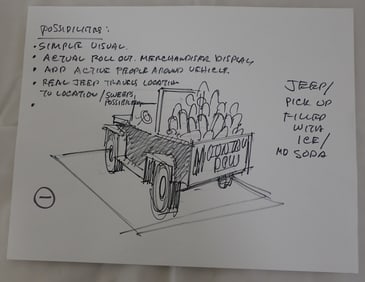 POSSIBILITIES:
• SIMPLE VISUAL.
• ACTUAL ROLL OUT. MERCHANDISER DISPLAY.
• ADD ACTIVE PEOPLE AROUND VEHICLE.
• REAL JEEP TRAVELS LOCATION
TO LOCATION/SWEEPS,
POSSIBILITIES
•
JEEP/
PICK UP
FILLED
WITH
ICE/
MD SODA
MOUNTAIN
DEW
1